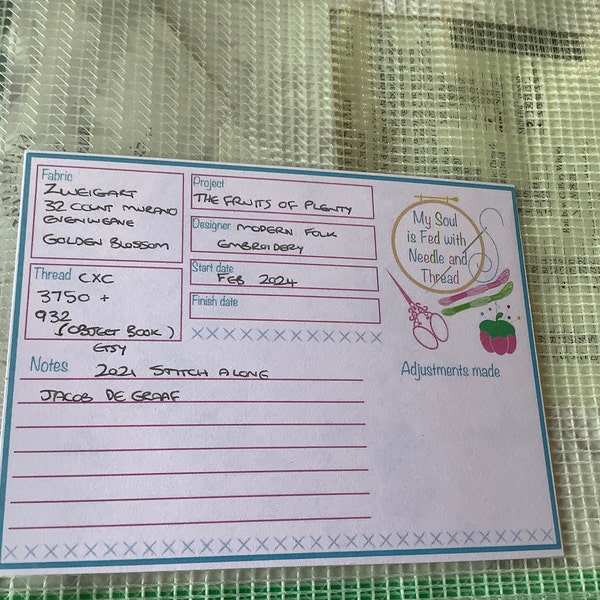 Fabric
ZWEIGART
32 COUNT MURANO
EVENWEAVE
GOLDEN BLOSSOM
Project
THE FRUITS OF PLENTY
Designer MODERN FOLK
EMBROIDERY
Start date
FEB 2024
Finish date
Thread CXC
3750 +
932
(OBJECT BOOK)
ETSY
My Soul
is Fed with
Needle and
Thread
Notes 2021 STITCH ALONG
JACOB DE GRAAF
Adjustments made